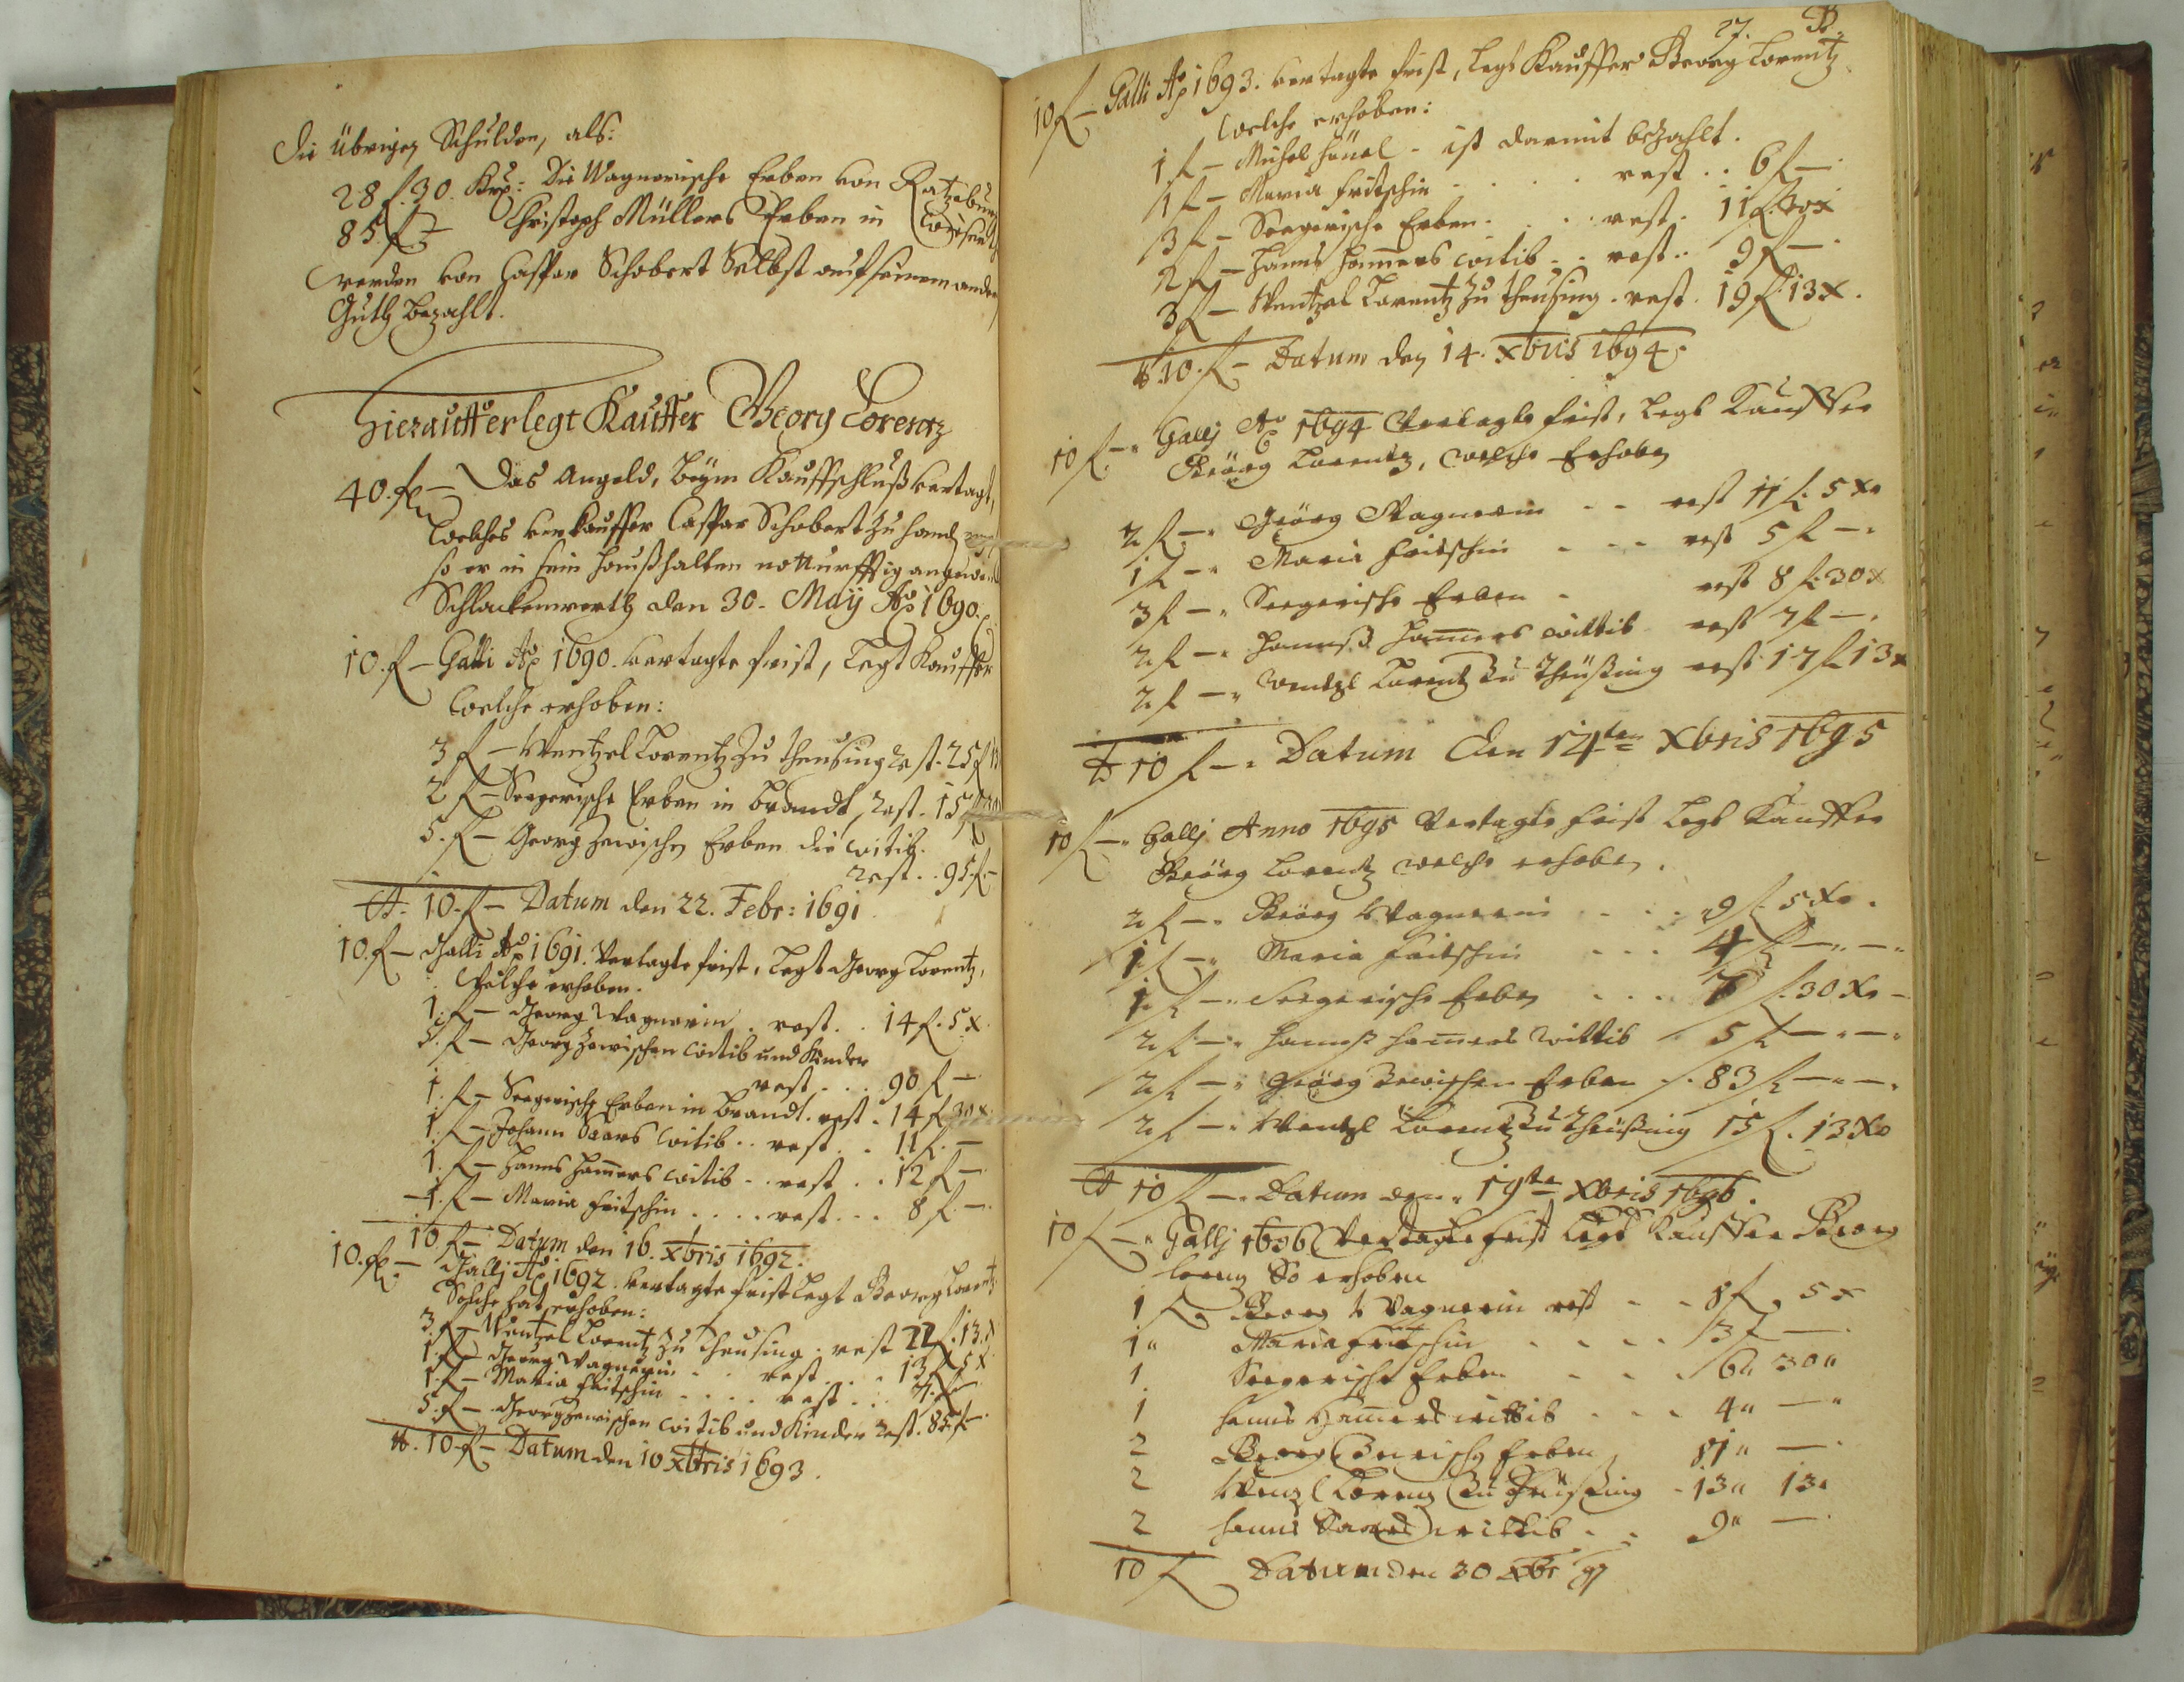 Die übrigen Schulden, als:
28 f. 30. Krz: Die Wagnerische Erben von Ratzeburg
85 f – Christoph Müllers Erben in
werden von Caspar Schobert Selbst auf seinem andern
Guth bezahlt.
Hierauff erlegt Kauffer Georg Lorentz
40. fl – Das Angeld, beym Kauffschluß vertagt,
welches verkauffer Caspar Schobert zu handen
so er in sein Haußhalten notturfftig angewend
Schlackenwerth den 30. May Ao 1690.
10. f – Galli Ao 1690. vertagte frist, legt Kauffer
welche erhoben:
3 f – Wentzel Lorentz zu Theusing rest. 25 f 13
2 f – Seegerische Erben in Brandt, rest. 15 f 30
5. f – Georg Zewischen Erben die witib.
rest. . 95 f –
10. f – Datum den 22. Febr: 1691
10. f – Galli Ao 1691. Vertagte frist, legt Georg Lorentz,
Welche erhoben.
1. f – Georg Wagnerin . rest. . 14 f. 5 x.
5. f – Georg Zewischen witib und Kinder
rest . . . 90 f –
1. f – Seegerische Erben in Brandt. rest . 14 f 30 x.
1. f – Johann Saars witib . . rest . . 11 f. –
1. f – Hanns Hamers witib . . rest . . 12 f –
1. f – Maria Fritschin . . . . rest . . . 8 f. –
10 f – Datum den 16. Xbris 1692.
10. fl. – Gallj Ao 1692. vertagte frist legt Georg Lorentz
Solche hat erhoben:
3. f – Wentzel Lorentz zu Theusing . rest 22 f. 13. x
1. f – Georg Wagnerin . . rest . . . 13 f 5 x
1. f – Maria Fritschin . . . . rest . . . 7. f –
5. f – Georg Zewischen witib und Kinder rest. 85. f –
10. f – Datum den 10 Xbris 1693.
27.
10 f – Galli Ao 1693. vertagte frist, legt Kauffer Georg Lorentz
welche erhoben:
1 f – Michel Heüel – ist darmit bezahlt.
1 f – Maria Fritschin . . . . rest . . 6 f –
3 f – Seegerische Erben . . . rest . 11 f. 30 x
2 f – Hanns Hamers witib . . rest . . 9 f –
3 f – Wentzel Lorentz zu Theusing . rest . 19 f 13 x.
10. f – Datum den 14. Xbris 1694.
10 f – Gallj Ao 1694 Vertagte frist, legt Kauffer
Geörg Lorentz, welche Erhoben
2 f – Geörg Wagnerin . . rest 11 f. 5 x
1 f – Maria Fritschin . . . rest 5 f –
3 f – Seegerische Erben . rest 8 f. 30 x
2 f – Hannß Hamers wittib rest 7 f –
2 f – Wentzl Lorentz zu Theüßing rest 17 f 13 x
10 f – Datum Den 14ten Xbris 1695
10 f – Gallj Anno 1695 Vertagte frist legt Kauffer
Geörg Lorentz welche erhoben.
2 f – Geörg Wagnerin . . . 9 f. 5 x
1 f – Maria Fritschin . . . 4 f – –
1 f – Seegerische Erben . . . 7 f. 30 x –
2 f – Hannß Hamers wittib . 5 f – –
2 f – Geörg Zewischen Erben . 83 f – –
2 f – Wentzl Lorentz zu Theüßing 15 f. 13 x
10 f – Datum den 19ten Xbris 1696.
10 f – Gallj 1696 Vertagte frist legt Kauffer Georg
Lorenz So erhoben
1 f Georg Wagnerin rest . . 8 f. 5 x
1 Maria Fritschin . . . . 3 f –
1 Seegerische Erben . . . 6 30
1 Hanns Hamers wittib . . . 4 –
2 Georg Zewische Erben 81 –
2 Wenzl Lorenz zu Theüßing . 13 13
2 Hanns Saars wittib . . 9 –
10 f Datum den 30 Xbr 97